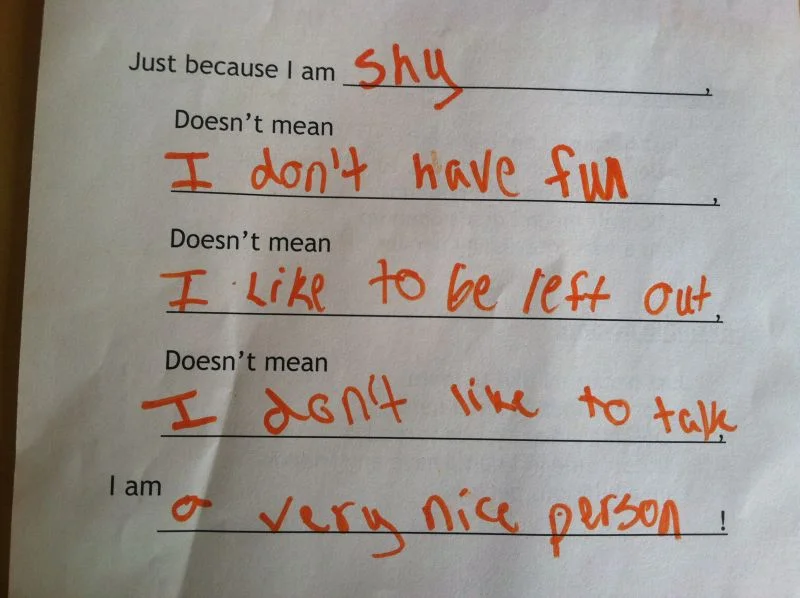 Just because I am shy,
Doesn't mean
I don't have fun,
Doesn't mean
I like to be left out,
Doesn't mean
I don't like to talk,
I am a very nice person!